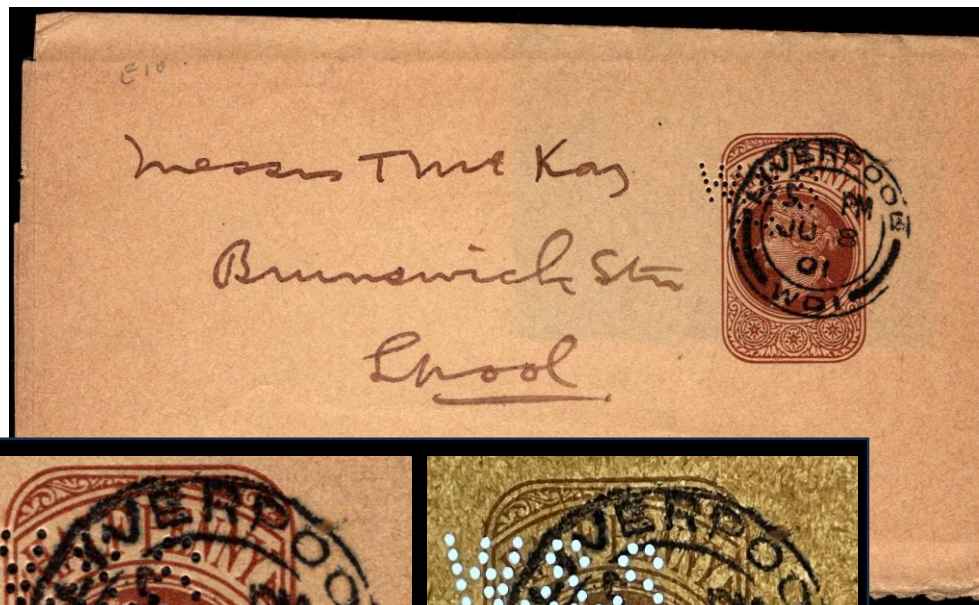 E10
Messrs T Mc Kay
Brunswick Str
Lpool
LIVERPOOL
5 PM
JU 8
01
WD1
LIVERPOO
LIVERPOO